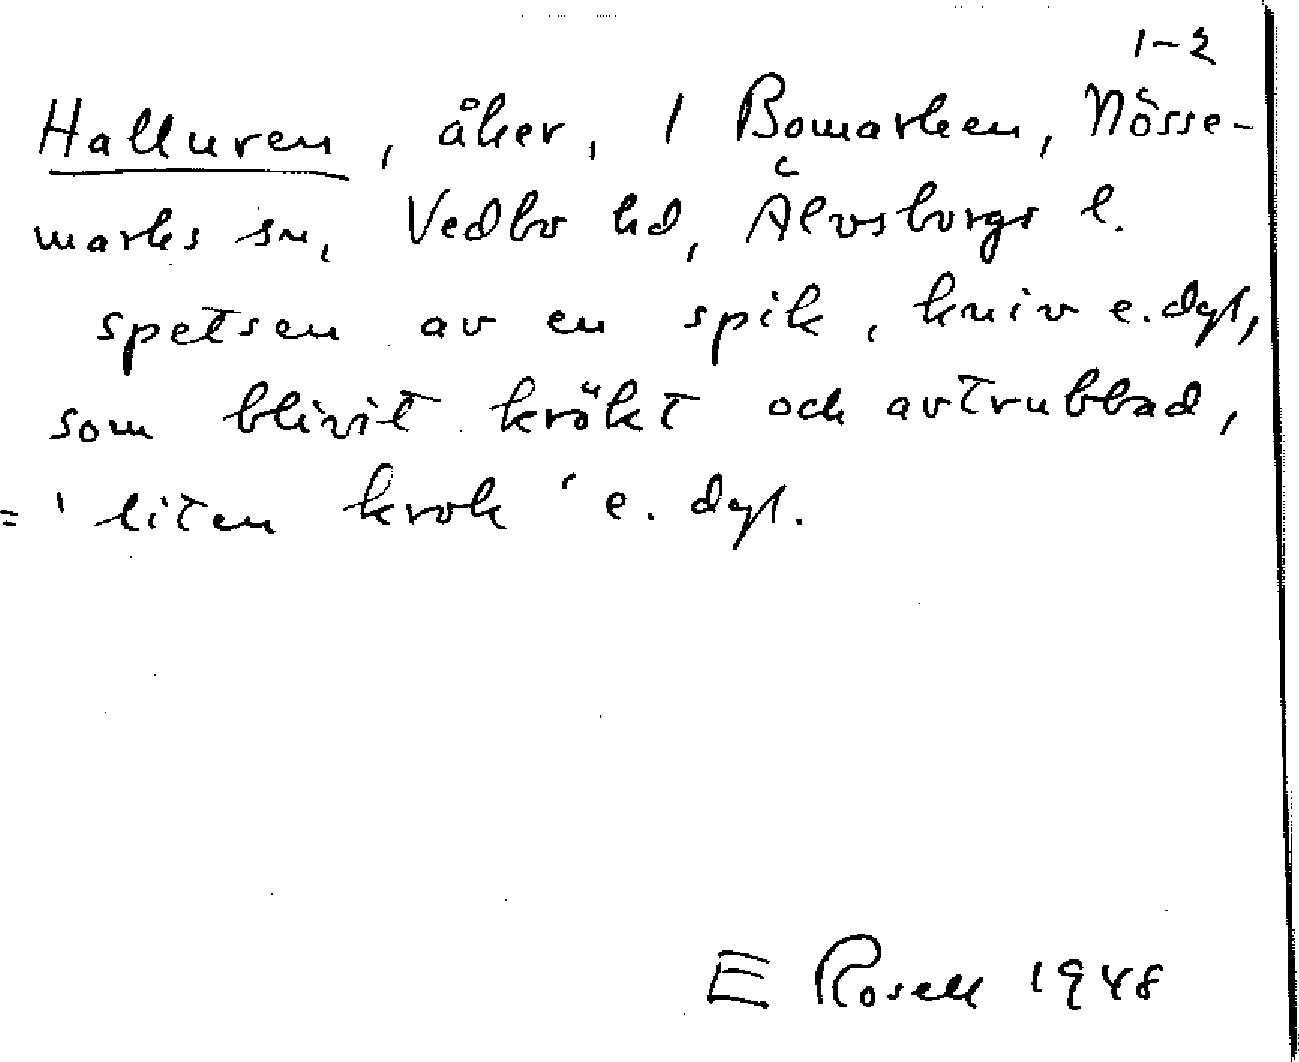 1-2
Halluren, åker, 1 Bomarken, Nösse-
marks sn, Vedbo hd, Älvsborgs l.
spetsen av en spik, kniv e.dyl,
som blivit krökt och avtrubbad,
= 'liten krok' e. dyl.
E Rosell 1948